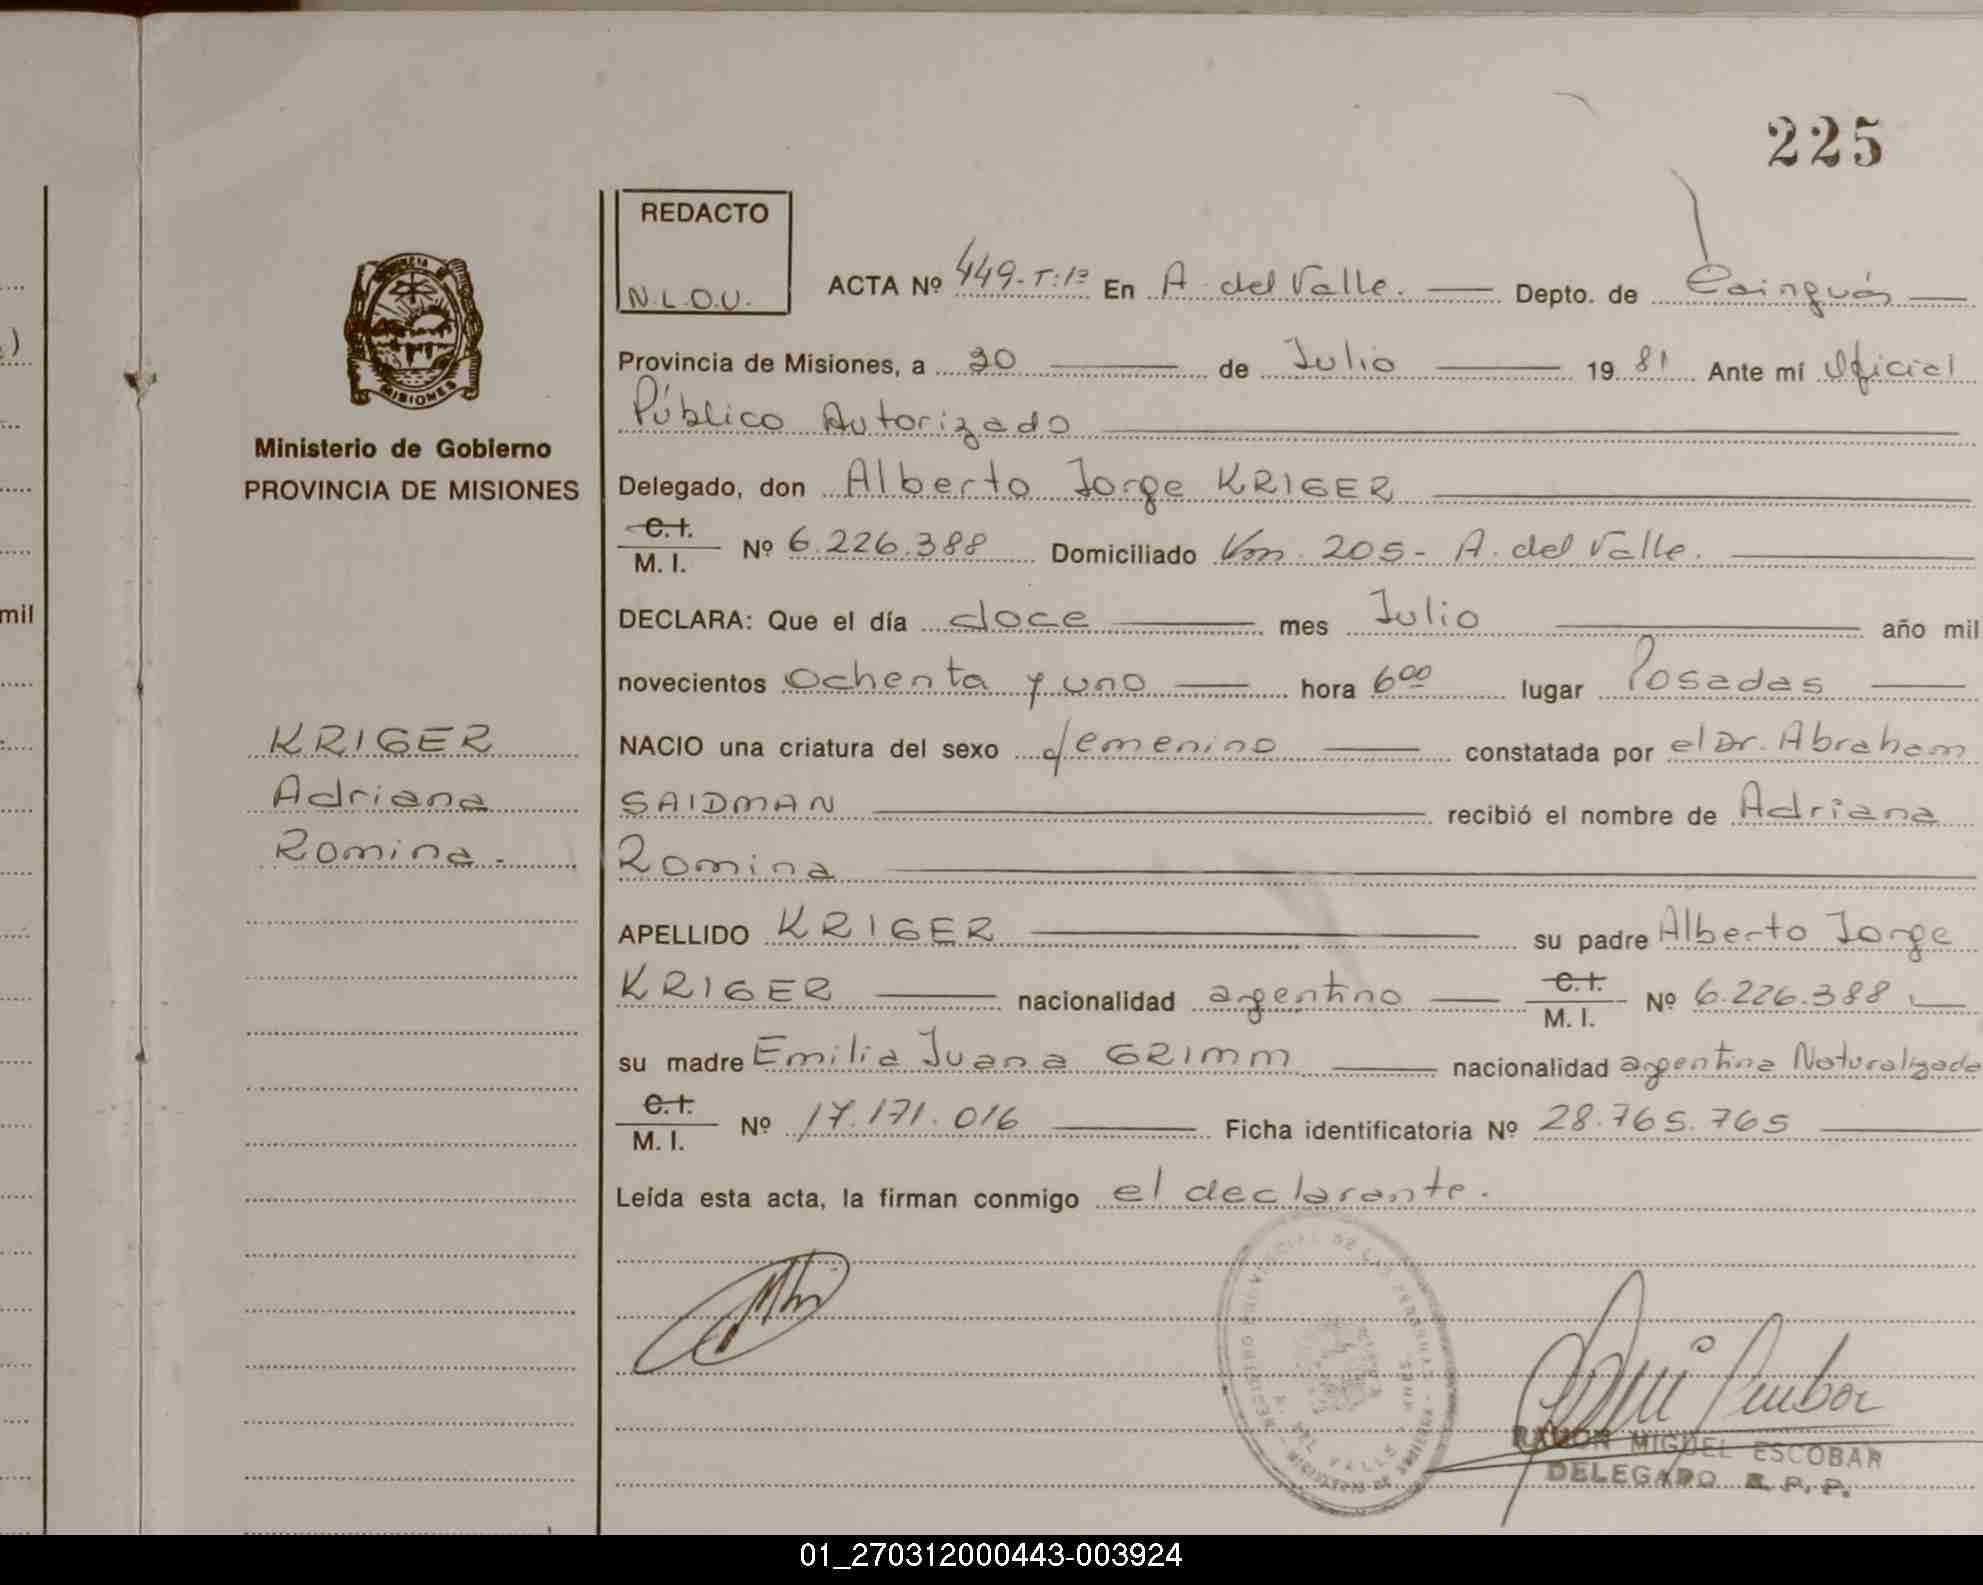 225
REDACTO
N.L.O.U.
ACTA Nº 449-T:1ª En A. del Valle. Depto. de Cainguás
Provincia de Misiones, a 30 de Julio 1981 Ante mí Oficial
Público Autorizado
Ministerio de Gobierno
PROVINCIA DE MISIONES
Delegado, don Alberto Jorge KRIGER
C.I.
M. I. Nº 6.226.388 Domiciliado Km. 205- A. del Valle.
DECLARA: Que el día doce mes Julio año mil
novecientos ochenta y uno hora 6⁰⁰ lugar Posadas
NACIO una criatura del sexo femenino constatada por el Dr. Abraham
SAIDMAN recibió el nombre de Adriana
Romina
KRIGER
Adriana
Romina.
APELLIDO KRIGER su padre Alberto Jorge
KRIGER nacionalidad argentino C.I.
M. I. Nº 6.226.388
su madre Emilia Juana GRIMM nacionalidad argentina Naturalizada
C.I.
M. I. Nº 17.171.016 Ficha identificatoria Nº 28.765.765
Leída esta acta, la firman conmigo el declarante.
RAMON MIGUEL ESCOBAR
DELEGADO R.P.P.
mil
MISIONES
01_270312000443-003924